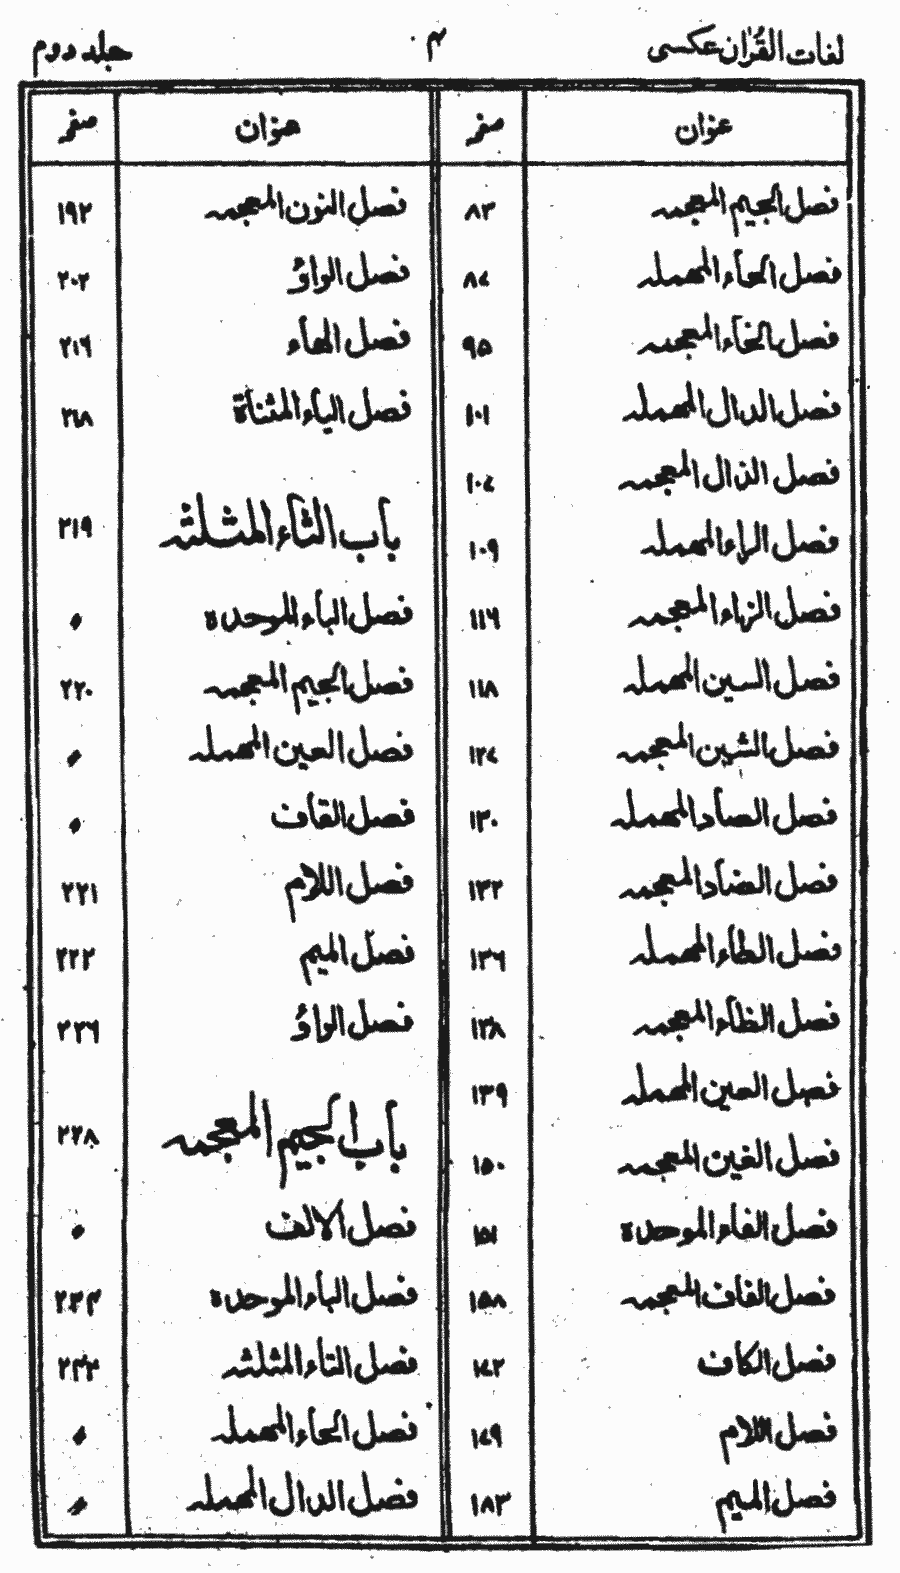 لغات القُرآن عکسی ۴ جلد دوم
عنوان صفحہ
فصل الجیم المعجمہ ۸۳
فصل الحاء المهملہ ۸۷
فصل الخاء المعجمہ ۹۵
فصل الدال المهملہ ۱۰۱
فصل الذال المعجمہ ۱۰۷
فصل الراء المهملہ ۱۰۹
فصل الزاء المعجمہ ۱۱۶
فصل السین المهملہ ۱۱۸
فصل الشین المعجمہ ۱۲۷
فصل الصاد المهملہ ۱۳۰
فصل الضاد المعجمہ ۱۳۲
فصل الطاء المهملہ ۱۳۶
فصل الظاء المعجمہ ۱۳۸
فصل العین المهملہ ۱۳۹
فصل الغین المعجمہ ۱۵۰
فصل الفاء الموحدة ۱۵۱
فصل القاف المعجمہ ۱۵۸
فصل الکاف ۱۷۲
فصل اللام ۱۷۹
فصل المیم ۱۸۳
عنوان صفحہ
فصل النون المعجمہ ۱۹۲
فصل الواؤ ۲۰۲
فصل الهاء ۲۱۶
فصل الیاء المثناة ۲۱۸
باب الثاء المثلثہ ۲۱۹
فصل الباء الموحدة ۰
فصل الجیم المعجمہ ۲۲۰
فصل العین المهملہ ۰
فصل القاف ۰
فصل اللام ۲۲۱
فصل المیم ۲۲۲
فصل الواؤ ۲۲۶
باب الجیم المعجمہ ۲۲۸
فصل الالف ۰
فصل الباء الموحدة ۲۳۴
فصل الثاء المثلثہ ۲۴۳
فصل الحاء المهملہ ۰
فصل الدال المهملہ ۰